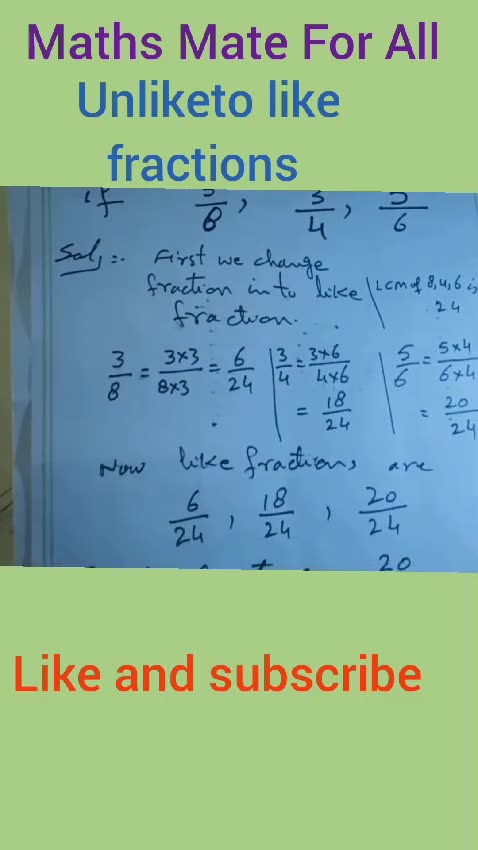 Maths Mate For All
Unliketo like
fractions
if 3/8, 3/4, 5/6
Sol:- First we change
fraction in to like | LCM of 8,4,6 is
fraction. 24
3/8 = 3×3/8×3 = 6/24 | 3/4 = 3×6/4×6 | 5/6 = 5×4/6×4
= 18/24 | = 20/24
Now like fractions are
6/24, 18/24, 20/24
20
Like and subscribe